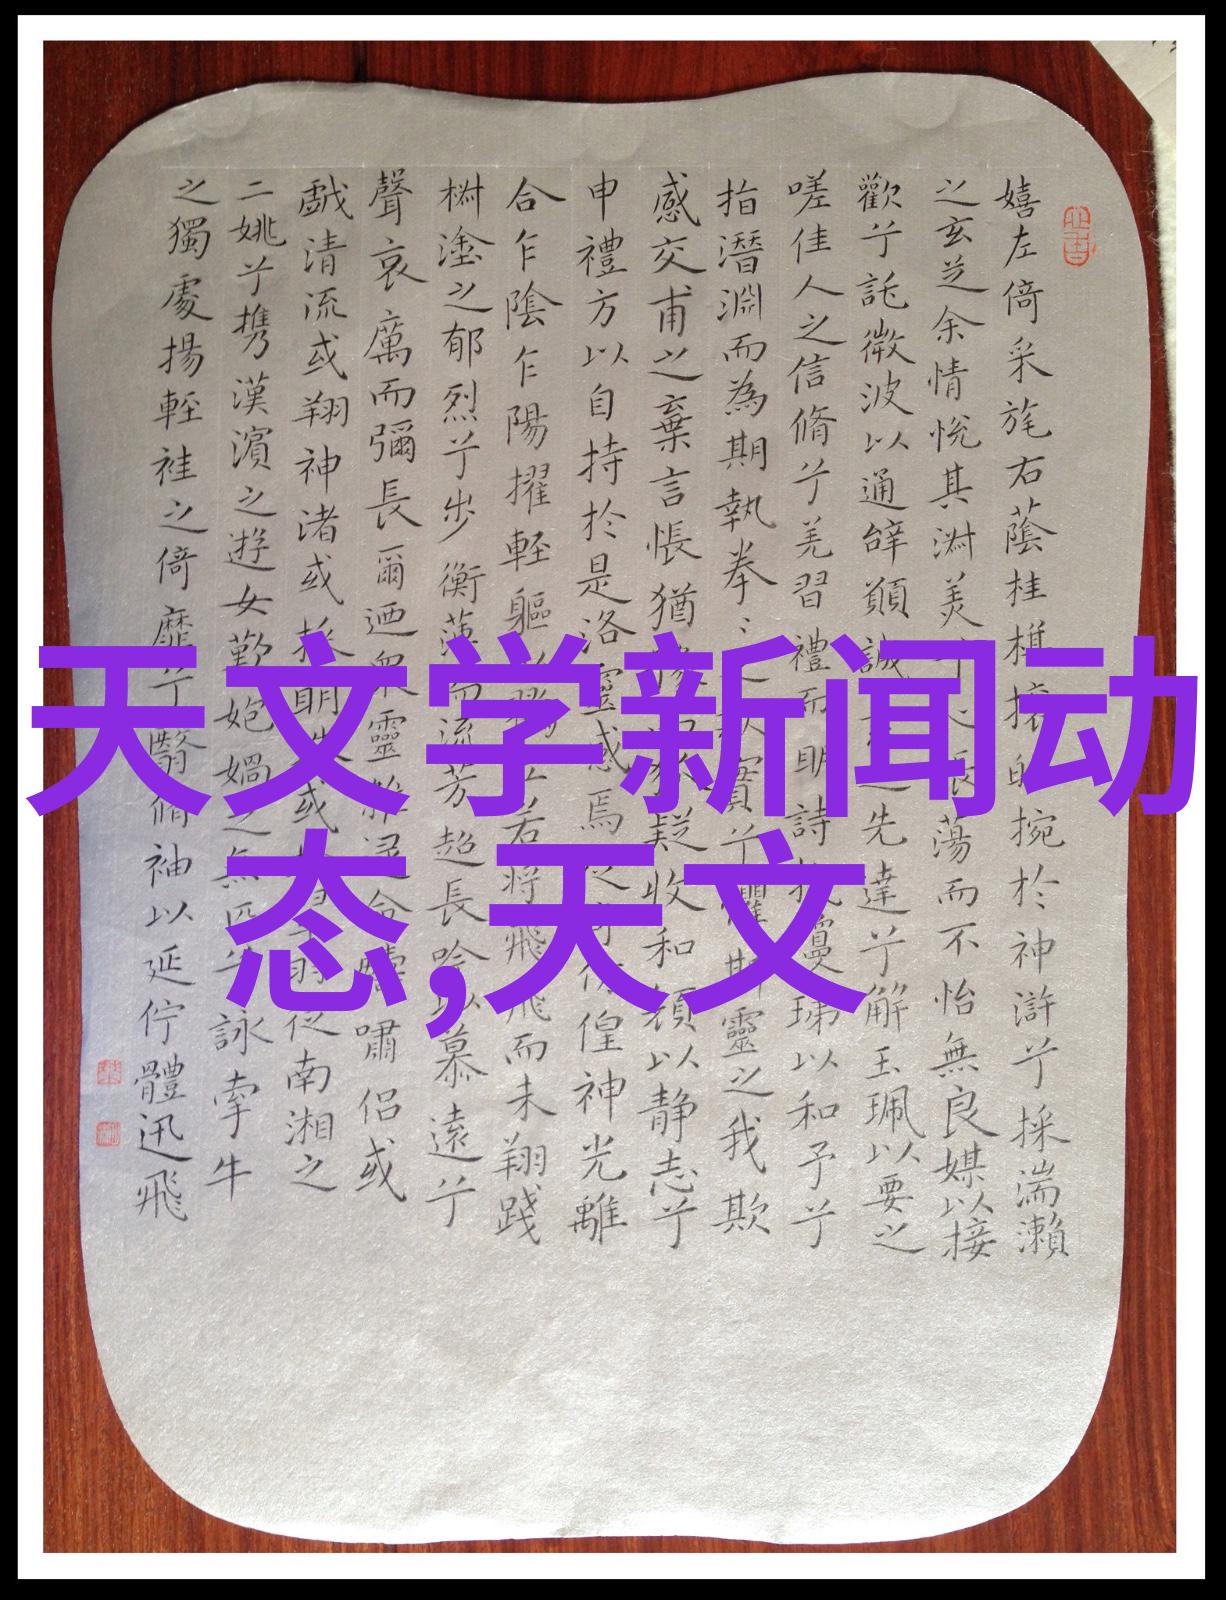 嬉左倚采旄右蔭桂旗攘皓捥於神滸兮採湍瀨
之玄芝余情悅其淋美兮心長蕩而不怡無良媒以接
歡兮託微波以通辭願誠之先達兮解玉珮以要之
嗟佳人之信脩兮羌習禮而明詩抗瓊珶以和予兮
指潛淵而為期執拳〻之款實兮懼斯靈之我欺
感交甫之棄言悵猶豫而狐疑收和顏以静志兮
申禮方以自持於是洛靈感焉徙倚傍偟神光離
合乍陰乍陽擢輕軀以鶴立若將飛飛而未翔踐
椒塗之郁烈兮步衡薄而流芳超長吟以慕遠兮
聲哀厲而彌長爾迺眾靈雜遝命疇嘯侶或
戲清流或翔神渚或採明珠或拾翠羽從南湘之
二姚兮攜漢濱之遊女歎匏媧之無匹兮詠牽牛
之獨處揚輕袿之倚靡兮翳脩袖以延佇體迅飛
天文学新闻动
态,天文